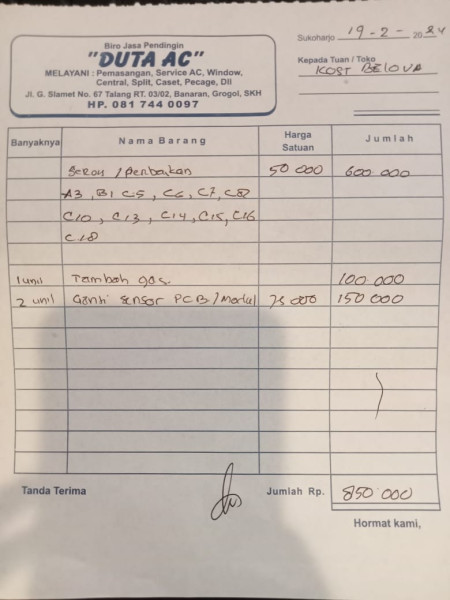 Biro Jasa Pendingin
"DUTA AC"
MELAYANI : Pemasangan, Service AC, Window,
Central, Split, Caset, Pecage, Dll
Jl. G. Slamet No. 67 Talang RT. 03/02, Banaran, Grogol, SKH
HP. 081 744 0097
Sukoharjo 19-2-2024
Kepada Tuan / Toko
KOST BELOVA
Banyaknya Nama Barang Harga Satuan Jumlah
/ 50 000 600 000
A3, B1 C5, C6, C7, C8
C10, C13, C14, C15, C16
C18
1 unit Tambah gas. 100 000
2 unit Ganti sensor PCB/Modul 75 000 150 000
Tanda Terima Jumlah Rp. 850 000
Hormat kami,